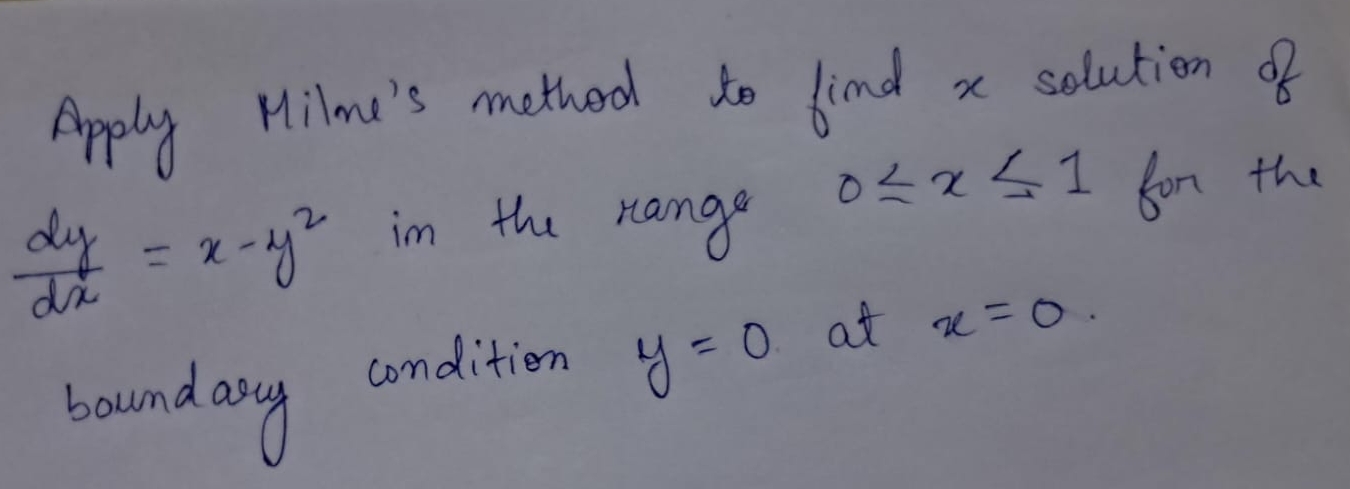 Apply Milne's method to find x solution of
dy/dx = x - y² in the range 0 ≤ x ≤ 1 for the
boundary condition y = 0 at x = 0.